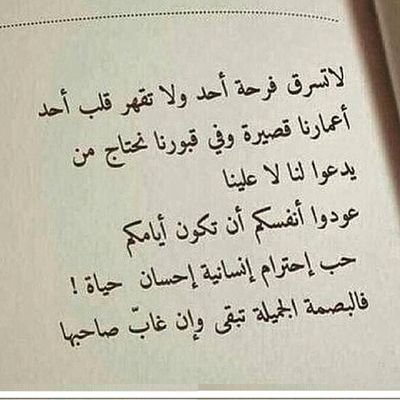 لاتسرق فرحة أحد ولا تقهر قلب أحد
أعمارنا قصيرة وفي قبورنا نحتاج من
يدعوا لنا لا علينا
عودوا أنفسكم أن تكون أيامكم
حب إحترام إنسانية إحسان حياة !
فالبصمة الجميلة تبقى وإن غابّ صاحبها